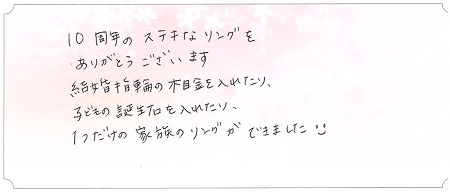 10周年のステキなリングを
ありがとうございます
結婚指輪の木目金を入れたり、
子どもの誕生石を入れたり、
1つだけの家族のリングができました